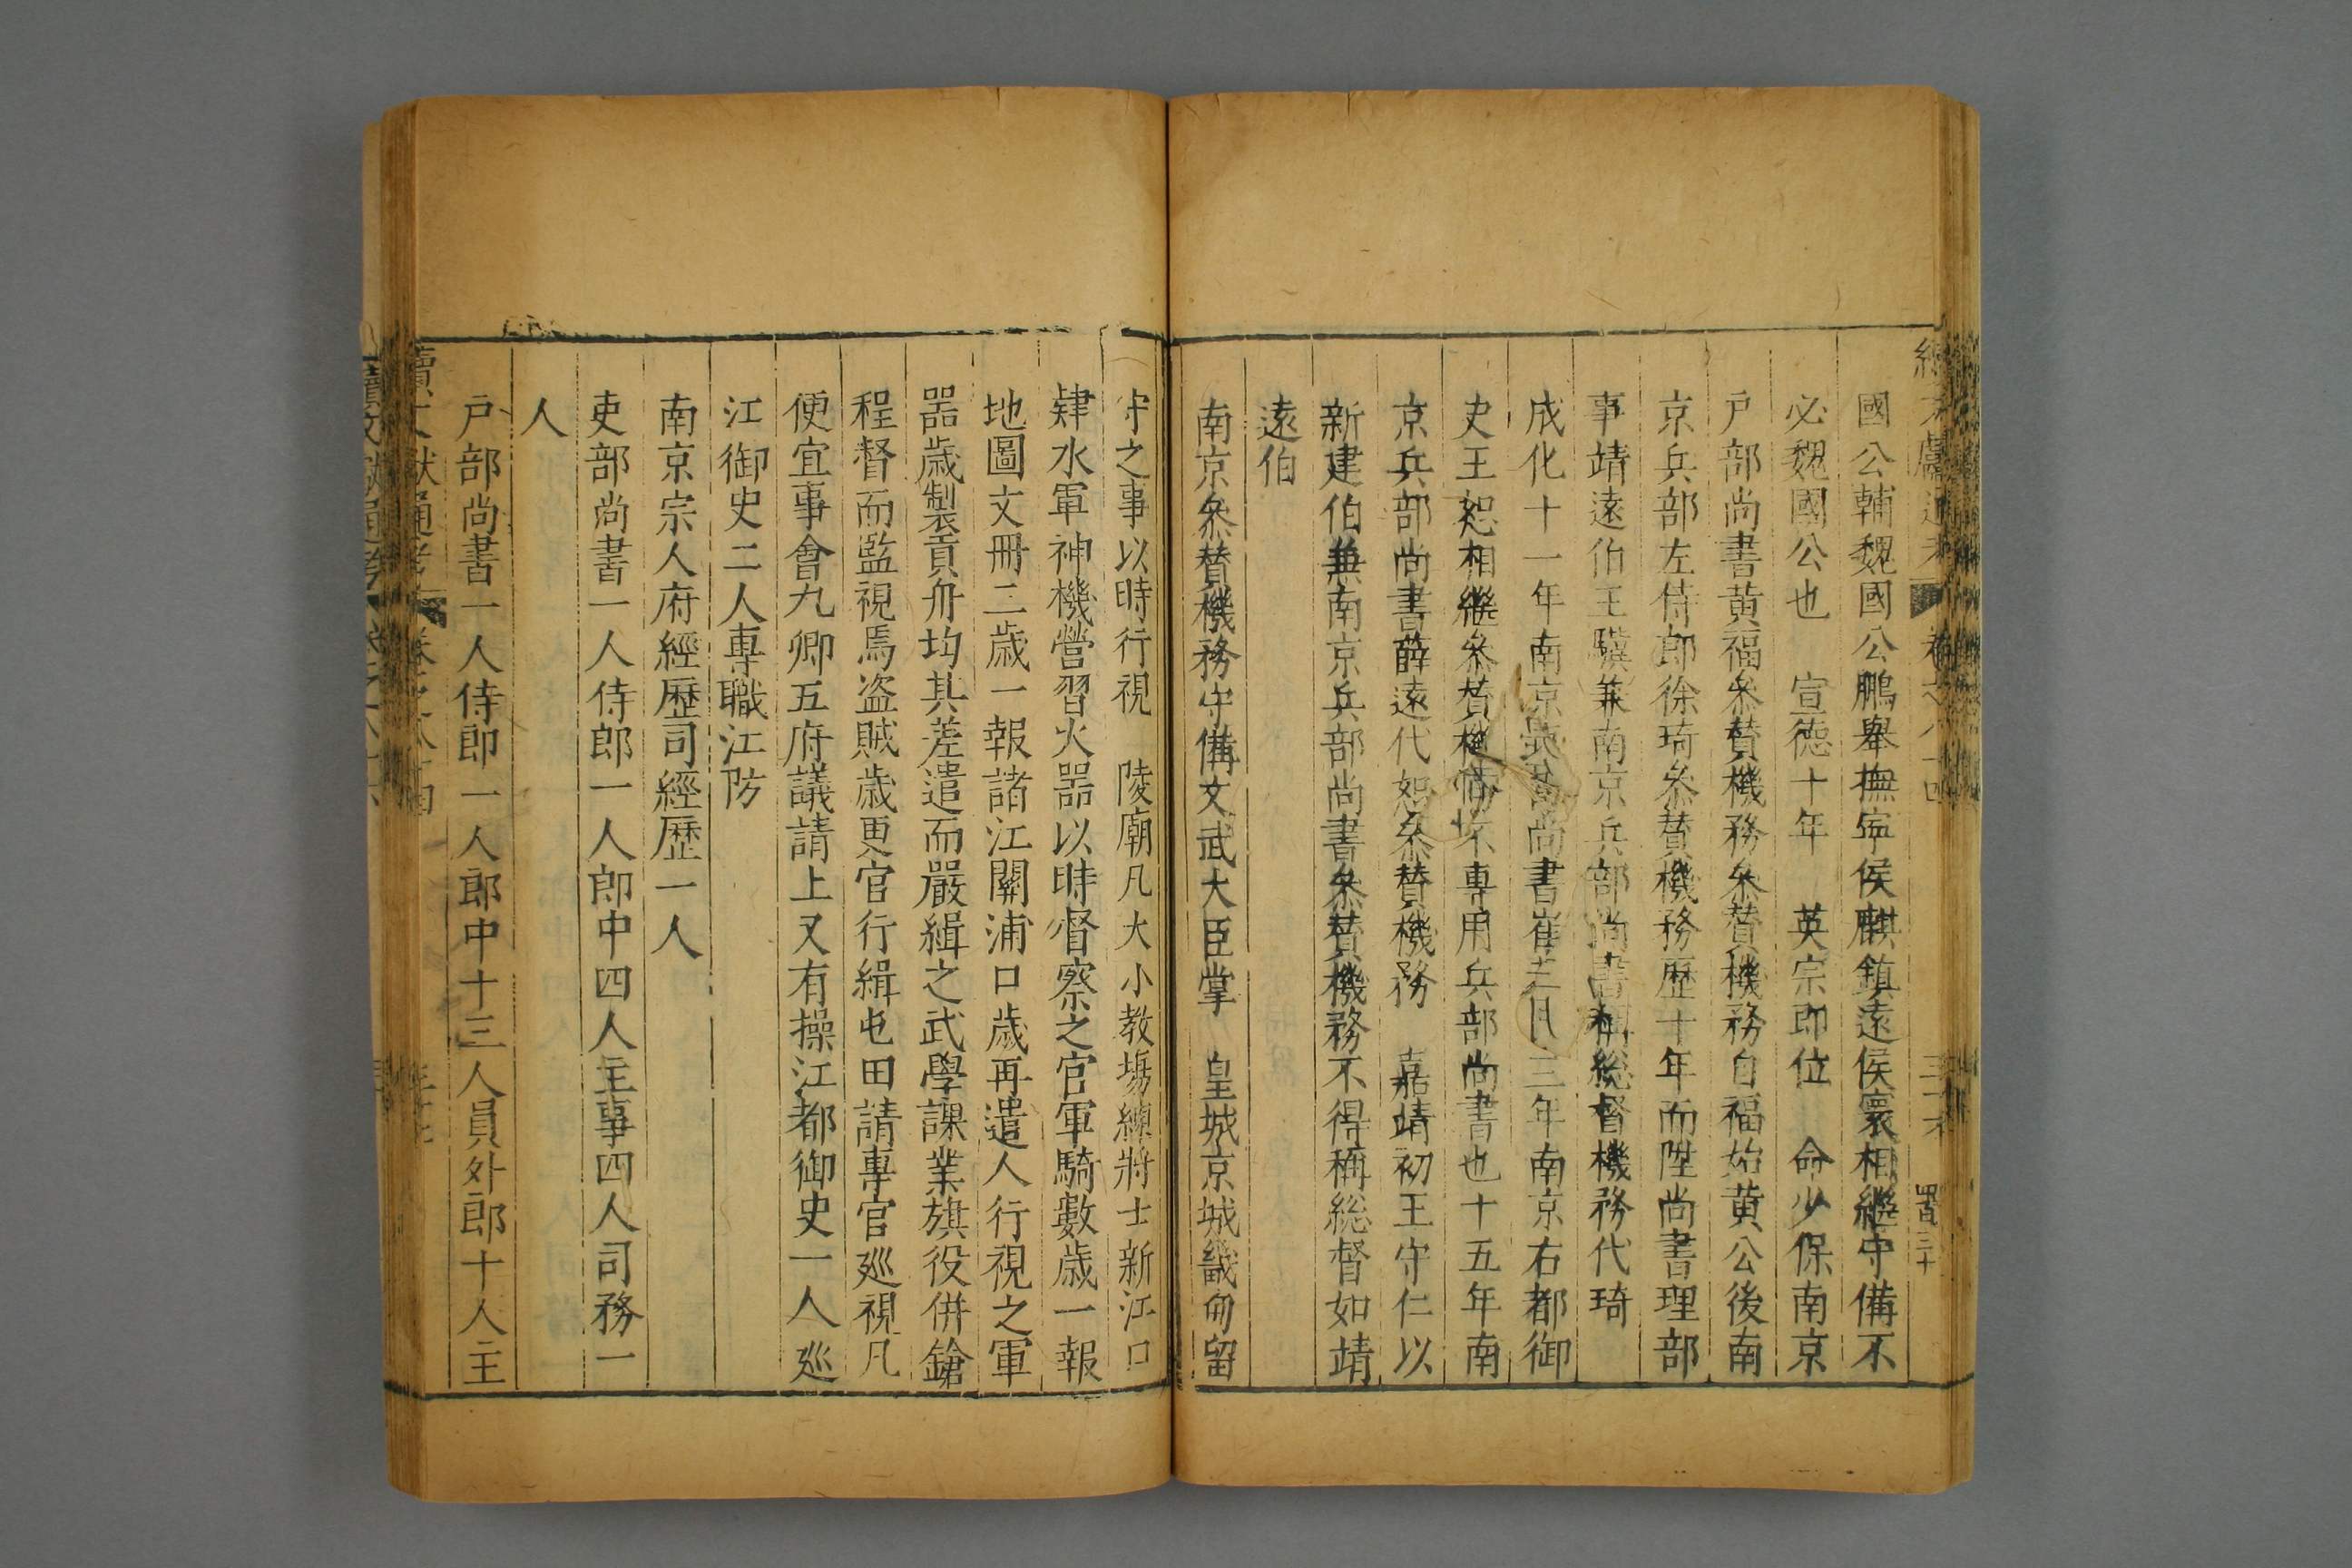 國公輔魏國公鵬舉撫寧侯麒鎮遠侯寰相繼守備不
必魏國公也　宣德十年　英宗即位　命少保南京
戶部尚書黃福叅贊機務叅贊機務自福始黃公後南
京兵部左侍郎徐琦叅贊機務歷十年而陞尚書理部
事靖遠伯王驥兼南京兵部尚書稱総督機務代琦
成化十一年南京尚書崔三年南京右都御
史王恕相繼叅贊機務不專用兵部尚書也十五年南
京兵部尚書薛遠代恕叅贊機務　嘉靖初王守仁以
新建伯兼南京兵部尚書叅贊機務不得稱総督如靖
遠伯
南京叅贊機務守備文武大臣掌　皇城京城畿甸留
守之事以時行視　陵廟凡大小教塲練將士新江口
肄水軍神機營習火噐以時督察之官軍騎數歲一報
地圖文冊二歲一報諸江關浦口歲再遣人行視之軍
噐歲製貢舟均其差遣而嚴緝之武學課業旗役併鎗
程督而監視焉盜賊歲更官行緝屯田請專官廵視凡
便宜事會九卿五府議請上又有操江都御史一人廵
江御史二人專職江防
南京宗人府經歷司經歷一人
吏部尚書一人侍郎一人郎中四人主事四人司務一
人
戶部尚書一人侍郎一人郎中十三人員外郎十人主